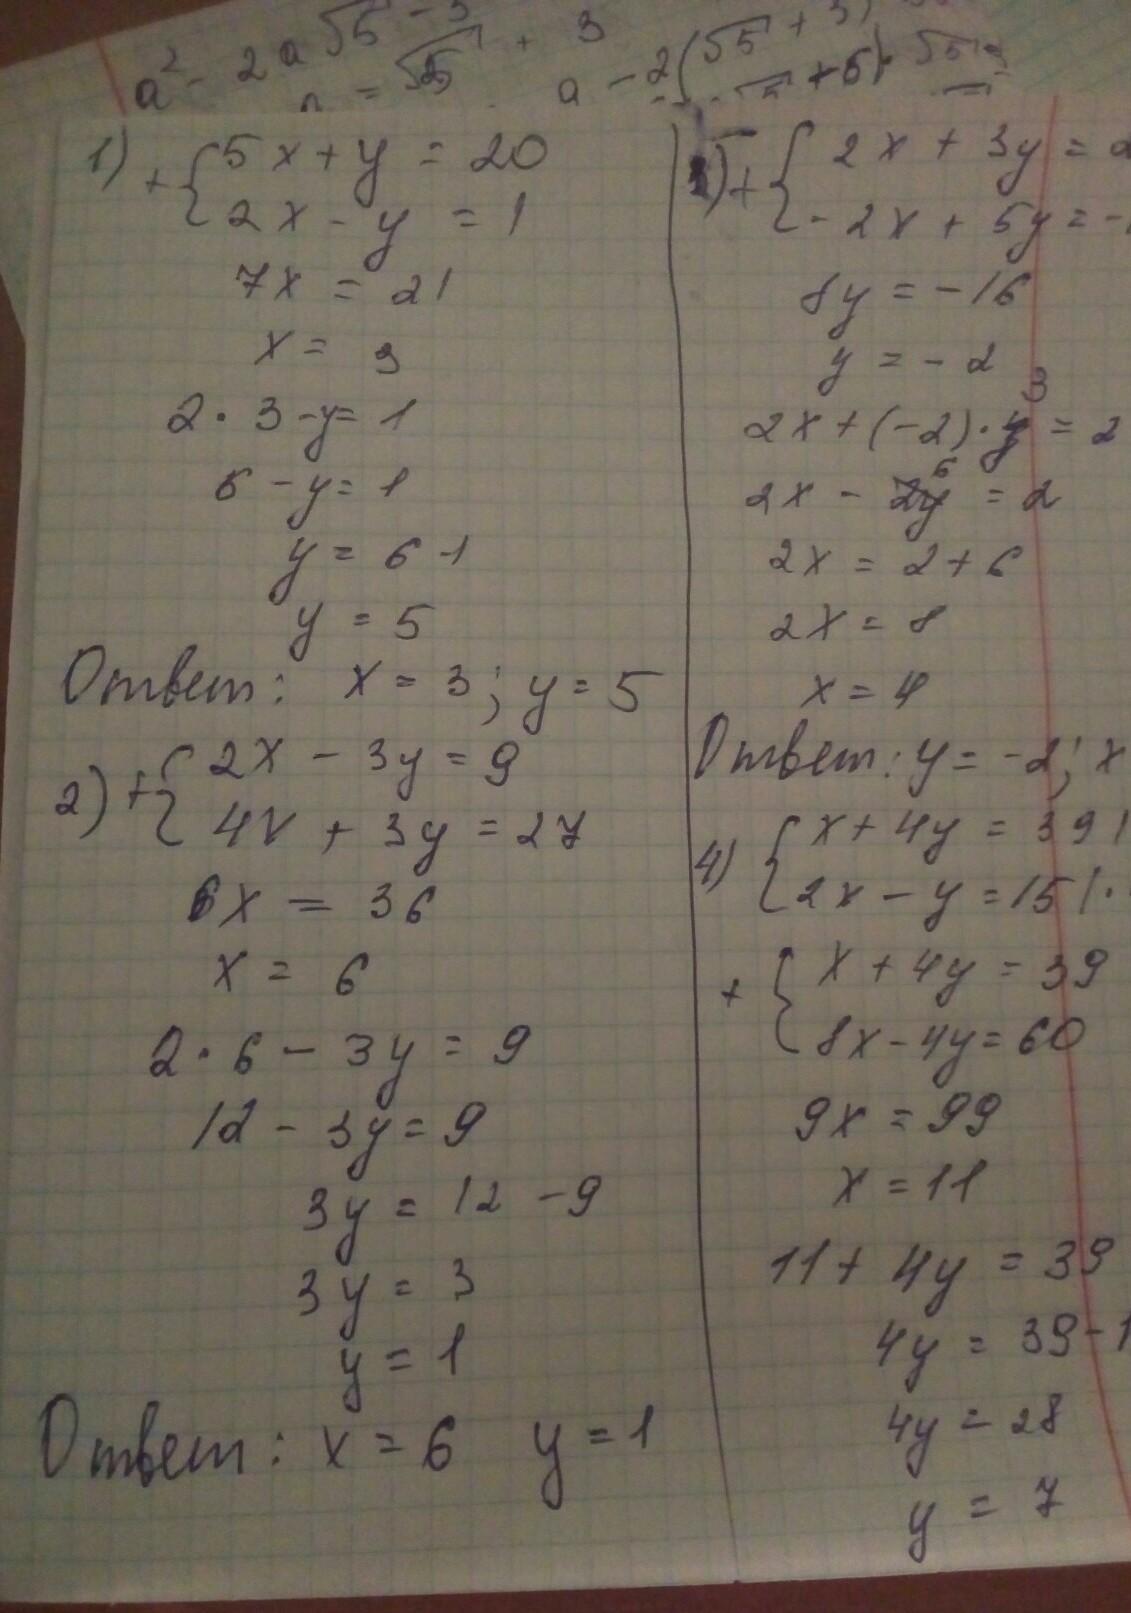 a² - 2a√5 - 3
= √5 + 3
a - 2(√5 + 3)
+ 5)·√5
1) + { 5x + y = 20
2x - y = 1
7x = 21
x = 3
2 · 3 - y = 1
6 - y = 1
y = 6 - 1
y = 5
Ответ: x = 3; y = 5
2) + { 2x - 3y = 9
4x + 3y = 27
6x = 36
x = 6
2 · 6 - 3y = 9
12 - 3y = 9
3y = 12 - 9
3y = 3
y = 1
Ответ: x = 6 y = 1
) + { 2x + 3y = 2
-2x + 5y = -
8y = -16
y = -2
2x + (-2) · 3 = 2
2x - 6 = 2
2x = 2 + 6
2x = 8
x = 4
Ответ: y = -2; x
4) { x + 4y = 39 |
2x - y = 15 | ·
+ { x + 4y = 39
8x - 4y = 60
9x = 99
x = 11
11 + 4y = 39
4y = 39 - 1
4y = 28
y = 7